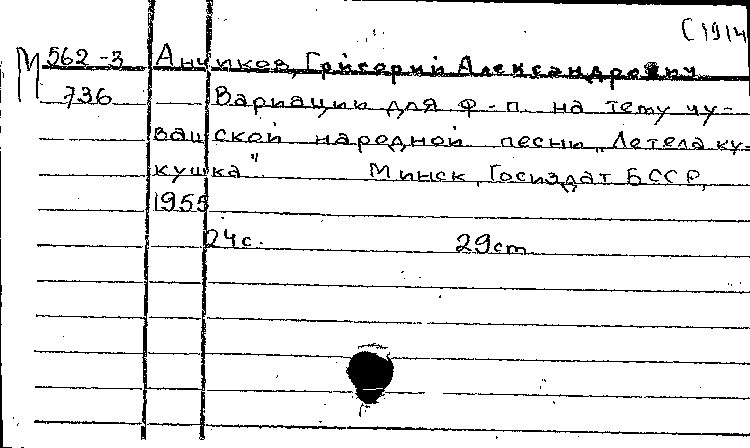 (1914
М 562-3 Анчиков, Григорий Александрович
736 Вариации для ф-п. на тему чу-
вашской народной песни „Летела ку-
кушка" Минск, Госиздат БССР,
1955
24с. 29cm